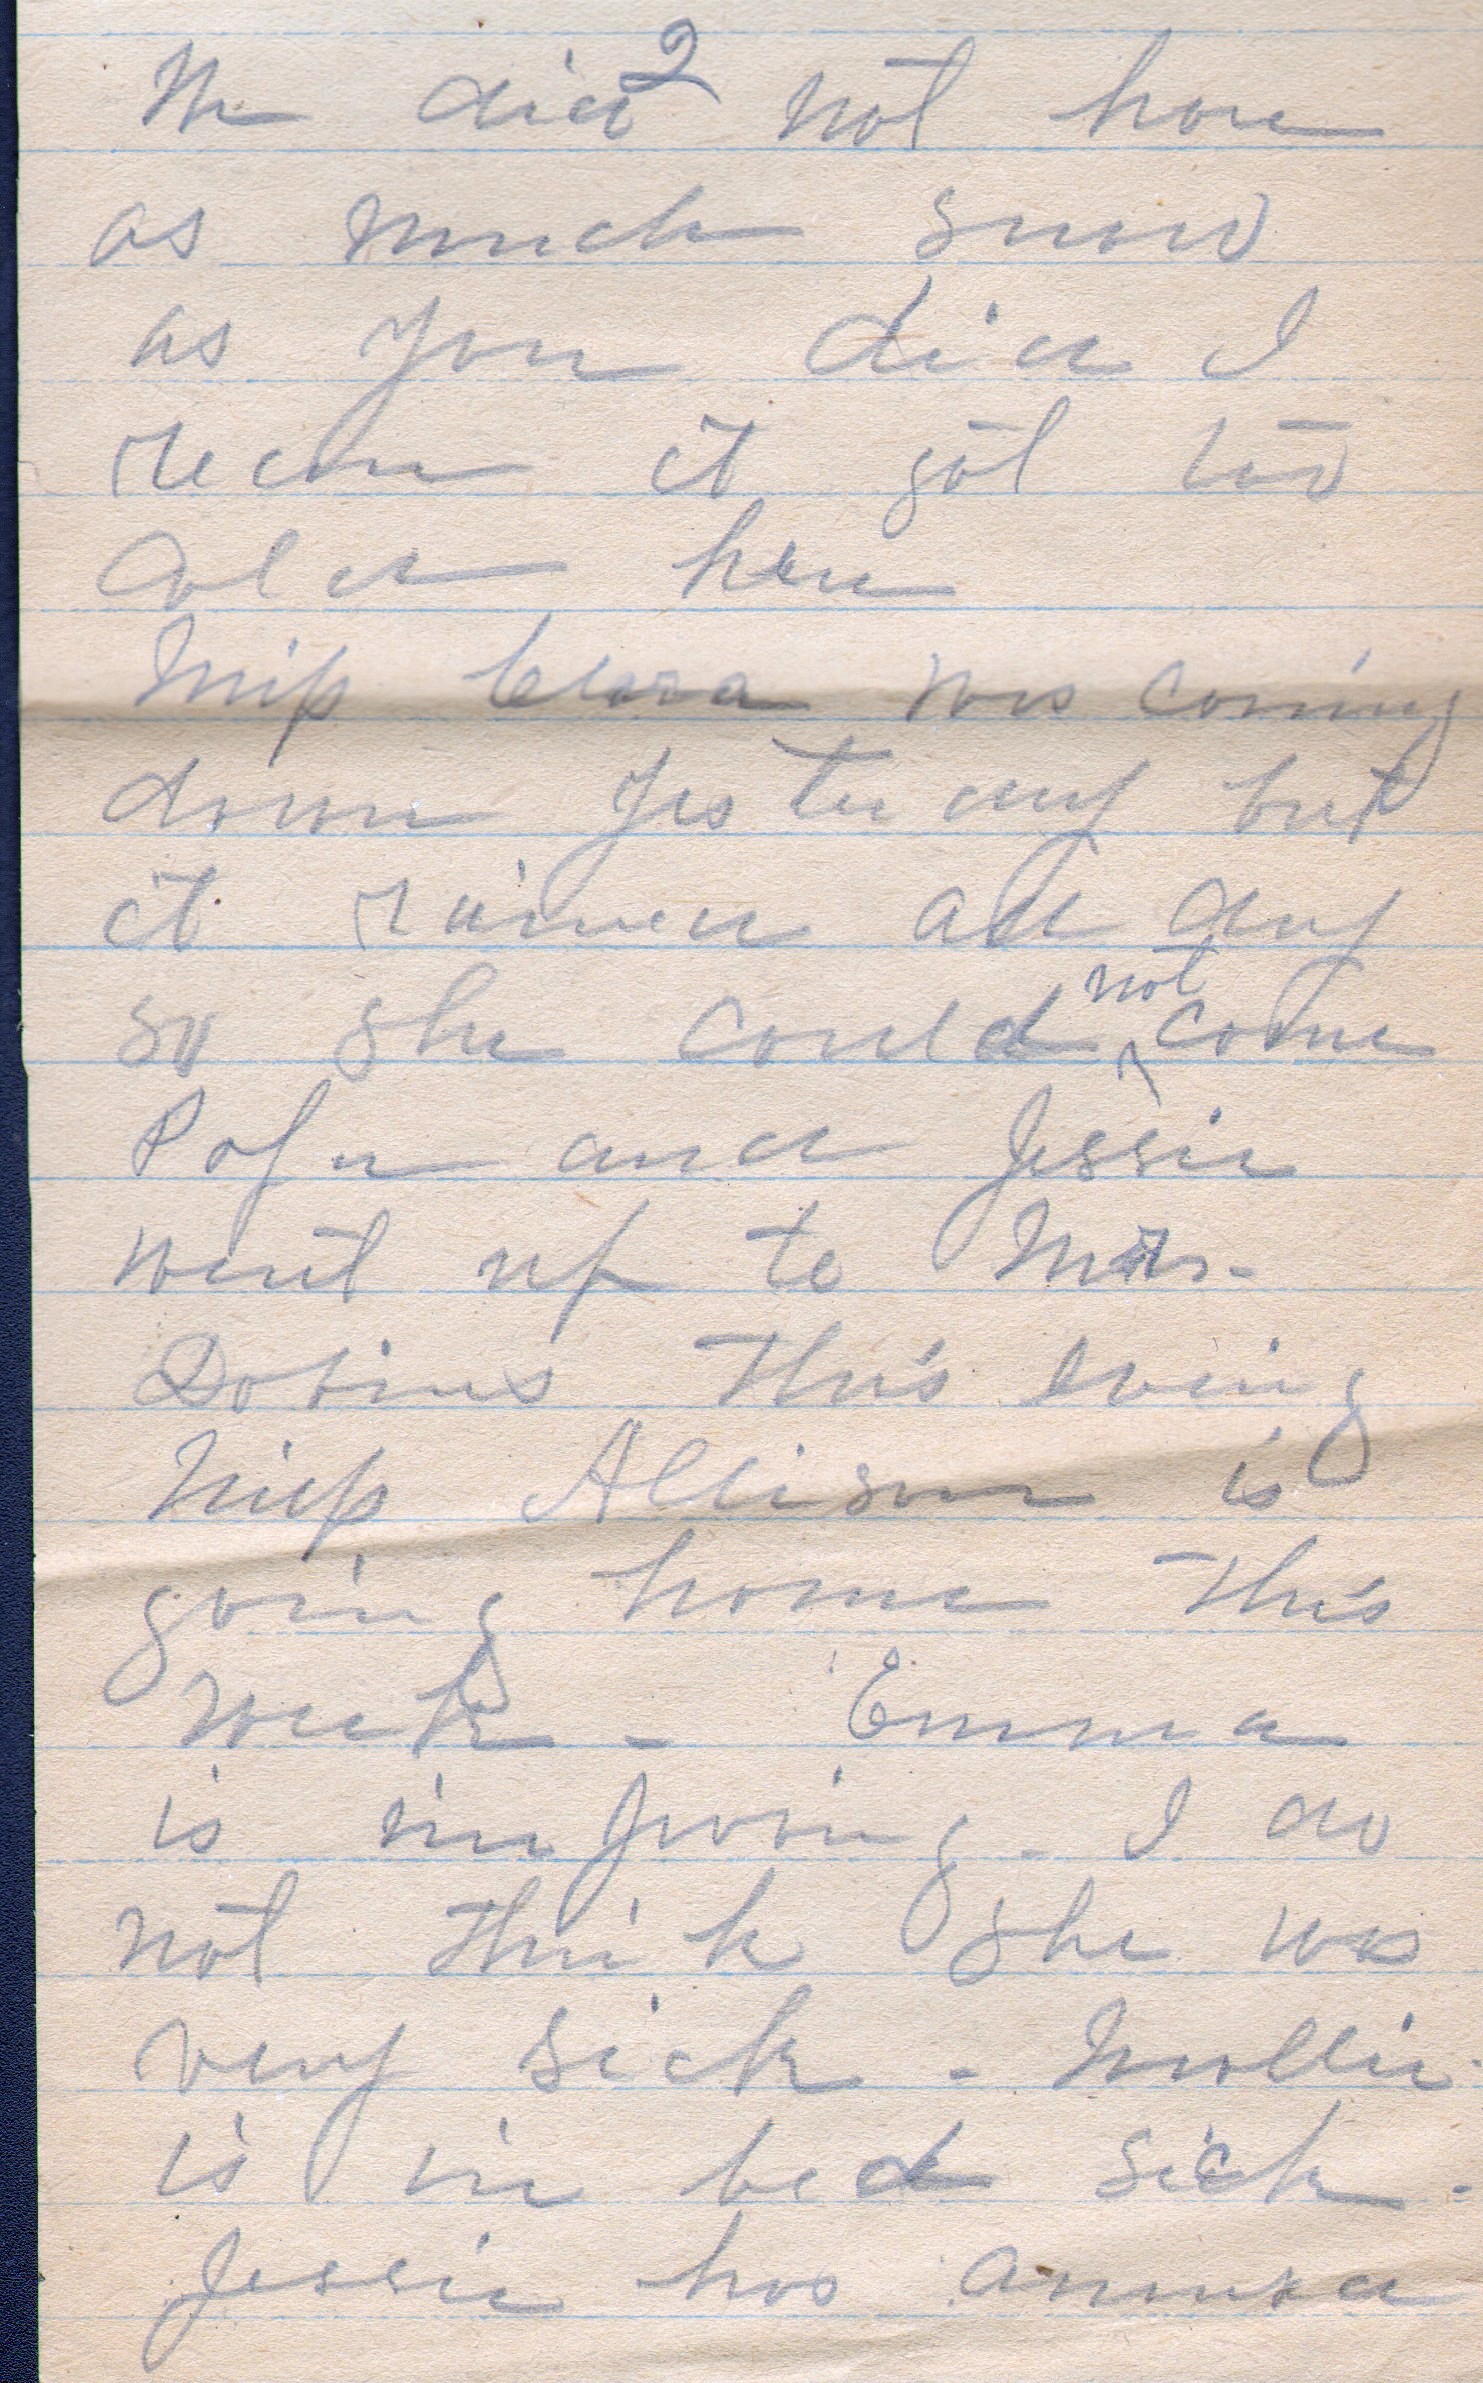 2
We did not have
as much snow
as you did I
recon it got too
Cold here
Miss Clara was coming
down yesterday but
it rained all day
so she could not come
Pope and Jessie
went up to Mrs.
this evning
Miss Allison is
going home this
week - Emma
is improving - I do
not think she was
very sick - Mollie
is in bed sick -
Jessie has